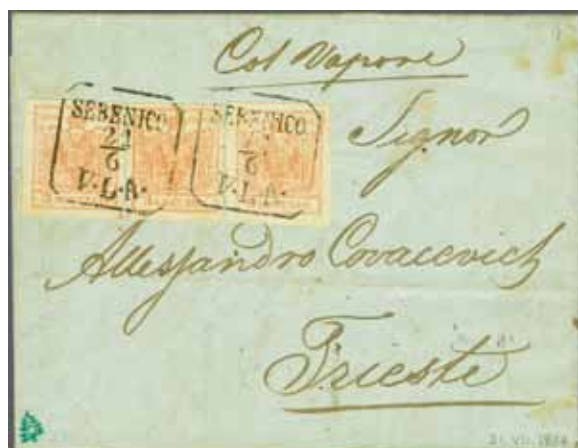 Col Vapore
SEBENICO
V.L.A.
SEBENICO
V.L.A.
Signor
Allessandro Covacevich
Trieste